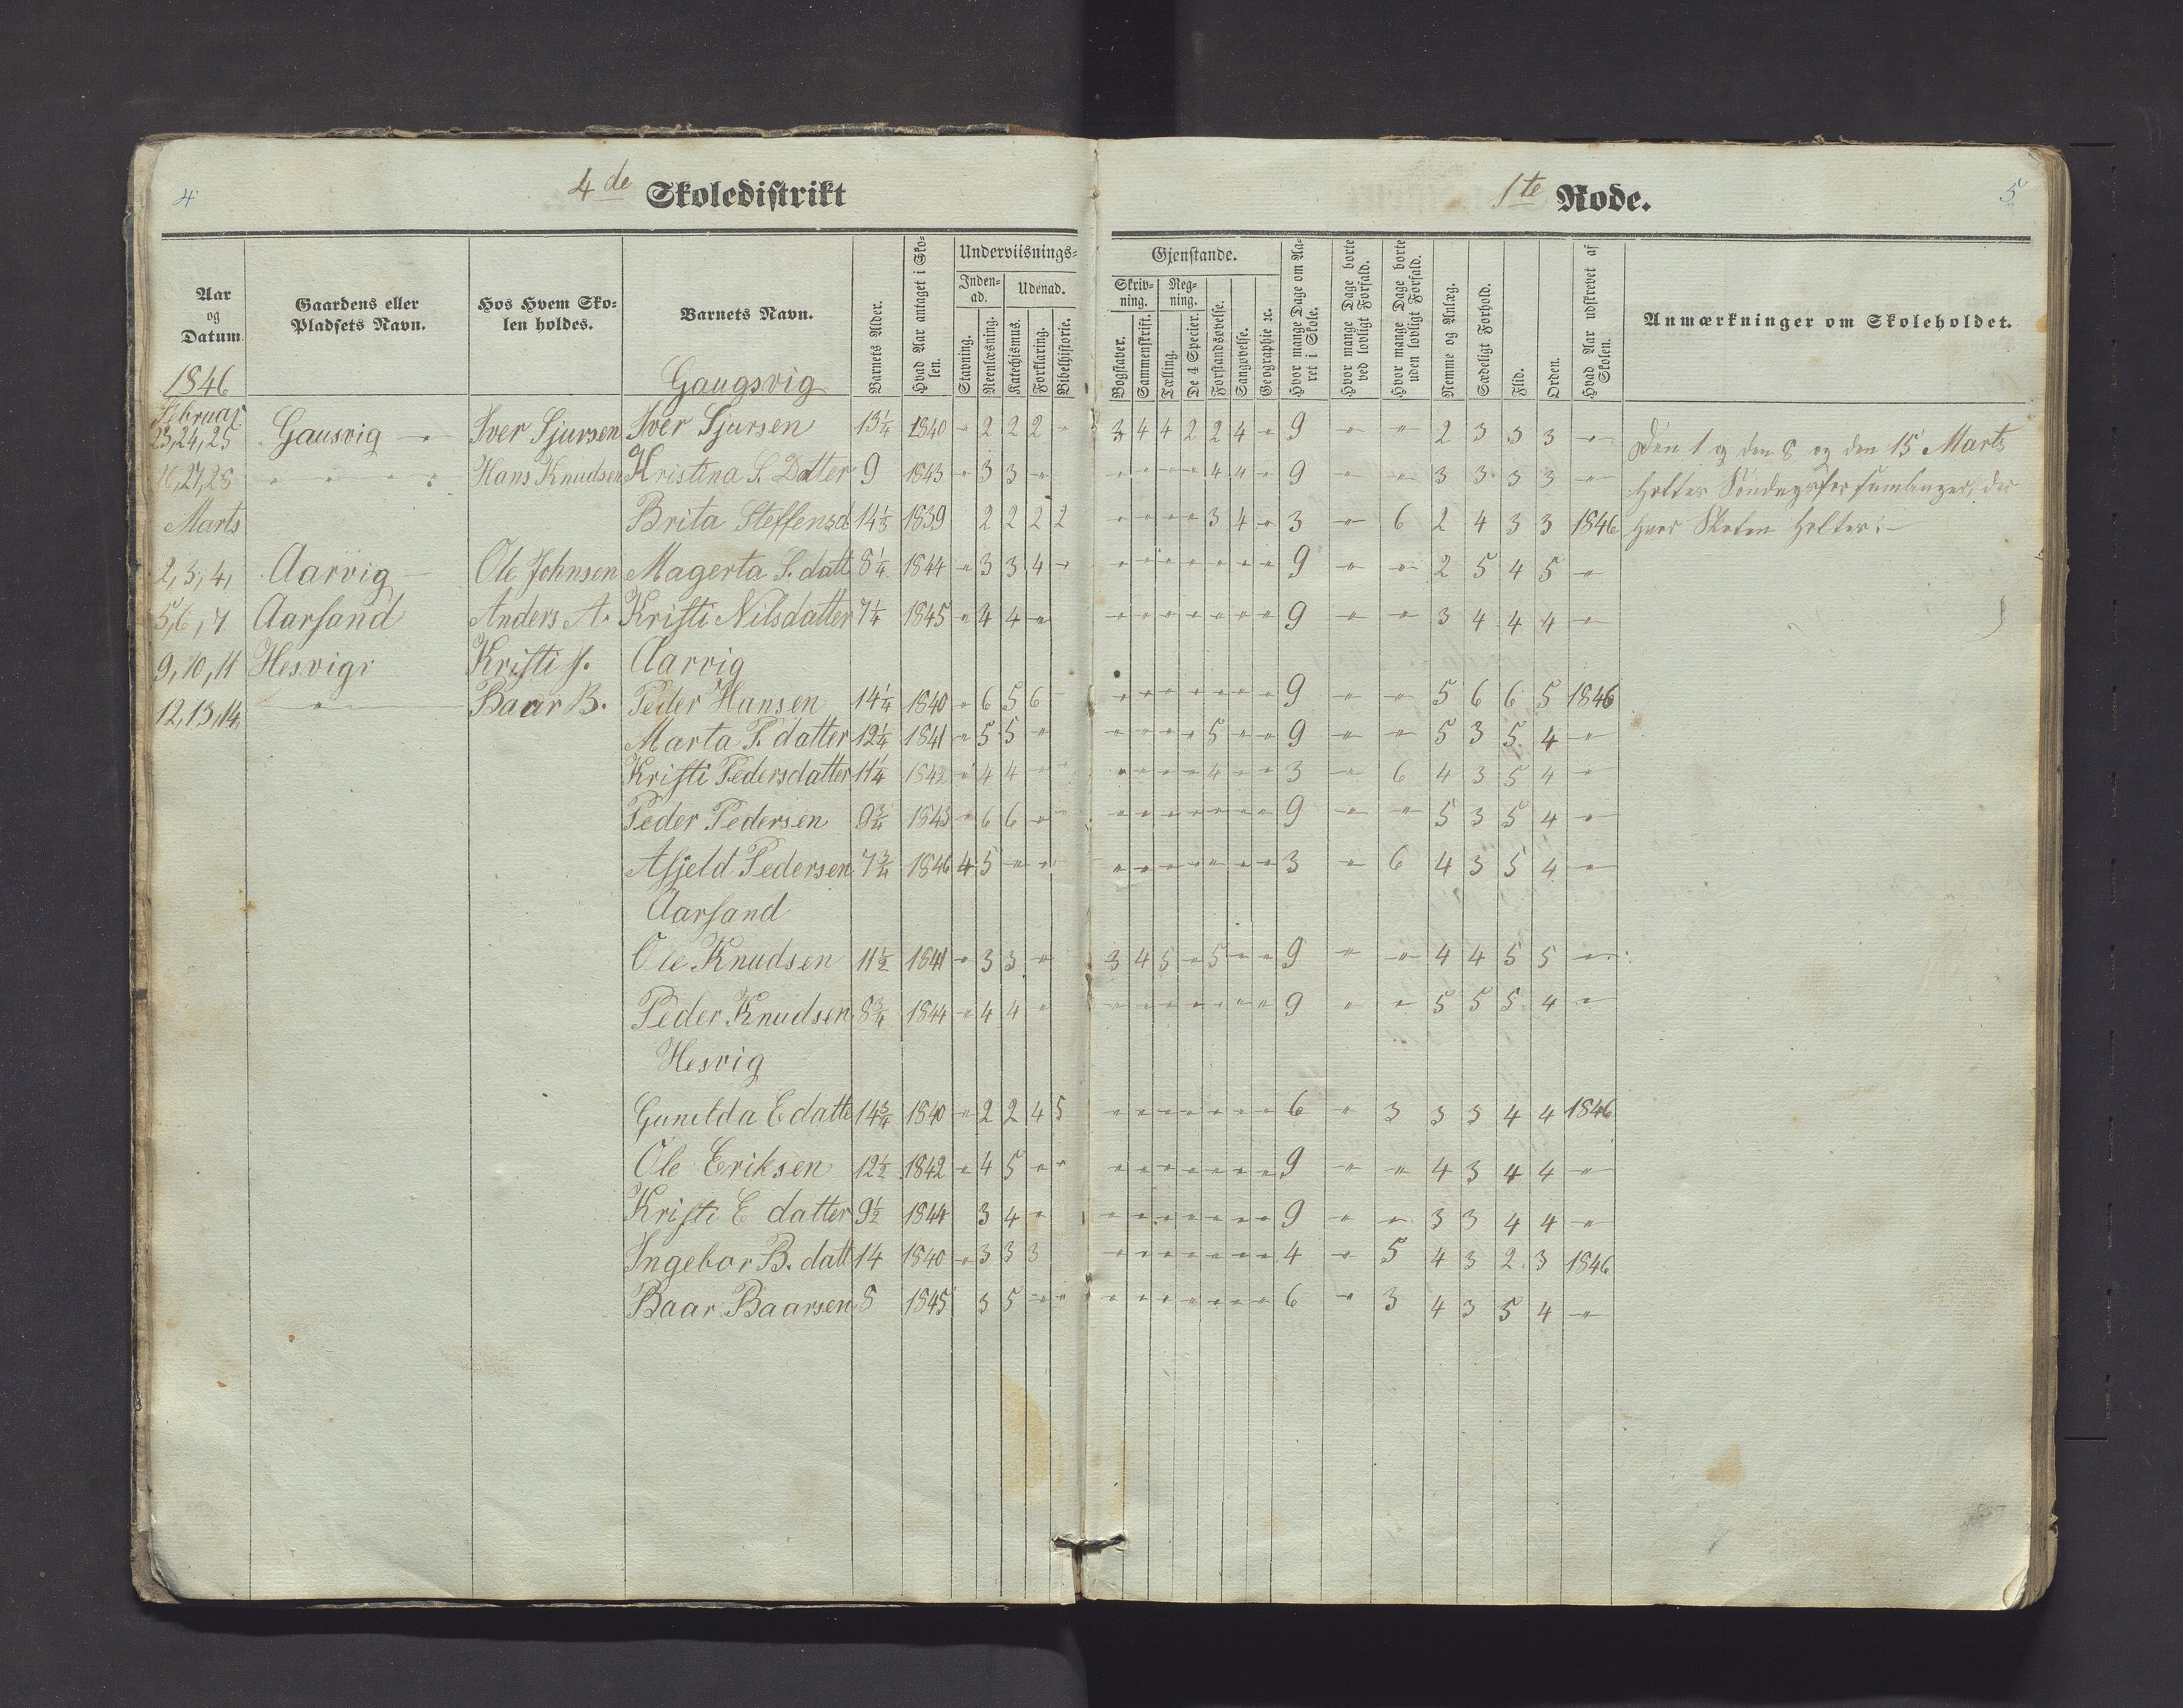 4 4de Skoledistrikt 1te Rode. 5
Aar og Datum
Gaardens eller Pladsets Navn.
Hos Hvem Skolen holdes.
Barnets Navn.
Barnets Alder.
Hvad Aar antaget i Skolen.
Underviisnings-
Inden-ad.
Udenad.
Stavning.
Reenlæsning.
Katechismus.
Forklaring.
Bibelhistorie.
Gjenstande.
Skriv-ning.
Reg-ning.
Bogstaver.
Sammenskrift.
Tælling.
De 4 Specier.
Forstandsøvelse.
Sangøvelse.
Geographie ꝛc.
Hvor mange Dage om Aaret i Skole.
Hvor mange Dage borte ved lovligt Forfald.
Hvor mange Dage borte uden lovligt Forfald.
Nemme og Anlæg.
Sædeligt Forhold.
Flid.
Orden.
Hvad Aar udskrevet af Skolen.
Anmærkninger om Skoleholdet.
1846 Gaugsvig
Februar
23,24,25 Gausvig " Iver Sjursen Iver Sjursen 13¼ 1840 " 2 2 2 " 3 4 4 2 2 4 " 9 " " 2 3 3 3 "
26,27,28 " " " : Hans Knudsen Kristina S. Datter 9 1843 " 3 3 " " " " " 4 4 " 9 " " 3 3 3 3 "
Marts Brita Steffensd 14⅓ 1839 2 2 2 2 " " " " 3 4 " 3 " 6 2 4 3 3 1846
2, 3, 4, Aarvig Ole Johnsen Magerta S. datt 8¼ 1844 " 3 3 4 " " " " " " " " 9 " " 2 5 4 5 "
5,6,7 Aarsand Anders A. Kristi Nilsdatter 7¼ 1845 " 4 4 " " " " " " " " 9 " " 3 4 4 4 "
9,10,11 Hesvigr Kristi J. Aarvig
12,13,14, " Baar B. Peder Hansen 14¼ 1840 " 6 5 6 " " " " " " " " 9 " " 5 6 6 5 1846
Marta P. datter 12¼ 1841 " 5 5 " " " " " 5 " " 9 " " 5 3 5 4 "
Kristi Pedersdatter 11¼ 1842 " 4 4 " " " " " " 4 " " 3 " 6 4 3 5 4 "
Peder Pedersen 9¾ 1843 " 6 6 " " " " " " " " " 9 " " 5 3 5 4 "
Asjeld Pedersen 7¾ 1846 4 5 " " " " " " " " " " 3 " 6 4 3 5 4 "
Aarsand
Ole Knudsen 11½ 1841 " 3 3 " 3 4 5 " 5 " " 9 " " 4 4 5 5 "
Peder Knudsen 8¾ 1844 " 4 4 " " " " " " " " 9 " " 5 5 5 4 "
Hesvig
Gunilda E datte 14¾ 1840 " 2 2 4 5 " " " " " " " 6 " 3 3 3 4 4 1846
Ole Eriksen 12½ 1842 " 4 5 " " " " " " " " " 9 " " 4 3 4 4 "
Kristi E datter 9½ 1844 3 4 " " " " " " " " 9 " " 3 3 4 4 "
Ingebor B. datt 14 1840 " 3 3 3 " " " " " " " 4 " 5 4 3 2 3 1846
Baar Baarsen 8 1845 3 5 " " " " " " " " " 6 " 3 4 3 5 4 "
Den 1 og den 8 og den 15 Marts
Holtes Söndagsforsamlinger, der
hvor Skolen Holtes.